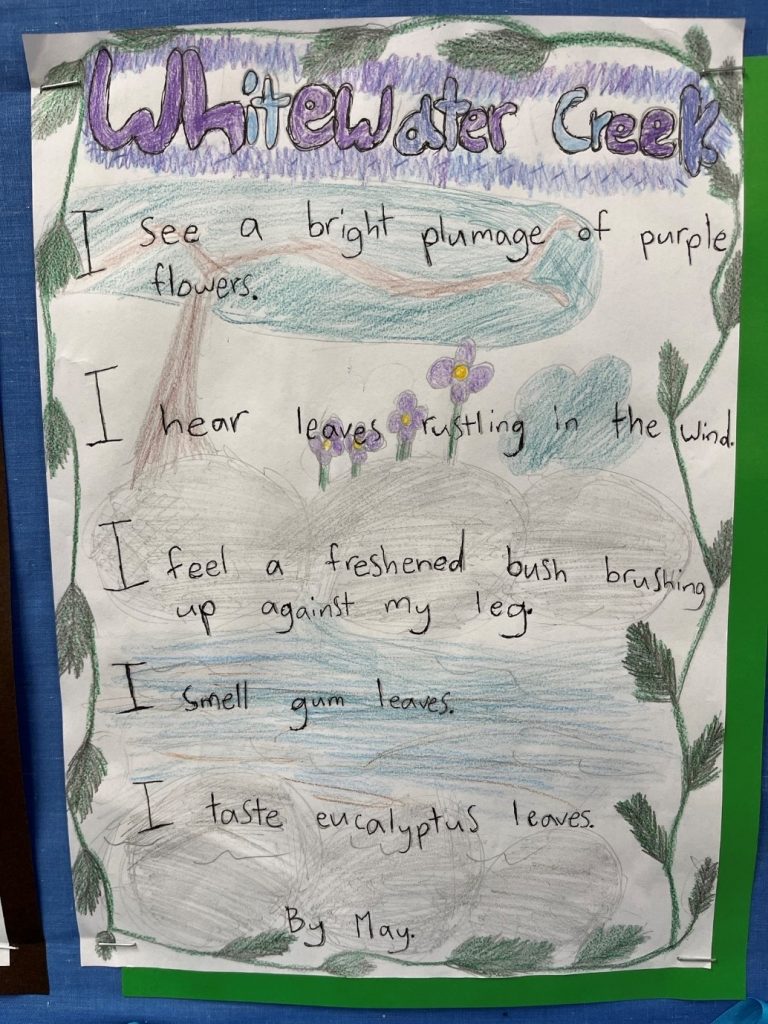 Whitewater Creek
I see a bright plumage of purple
flowers.
I hear leaves rustling in the wind.
I feel a freshened bush brushing
up against my leg.
I smell gum leaves.
I taste eucalyptus leaves.
By May.